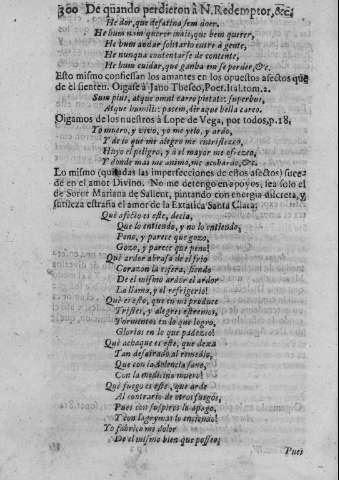 300 De quando perdieron à N. Redemptor, &c.
He dor, que desatina sem doer,
He hum nam querer mais, que bem querer,
He hum andar solitario entre à gente,
He nunqua contentarse de contente,
He hum cuidar, que ganha em se perder, &c.
Esto mismo confiessan los amantes en los opuestos afectos que
de el sienten. Oigase à Jano Theseo, Poet. Ital. tom. 2.
Sum pius, atque omni careo pietate: superbus,
Atque humilis: pacem, dir aque bella careo.
Oigamos de los nuestros à Lope de Vega, por todos, p. 18,
Yo muero, y vivo, yo me yelo, y ardo,
Y de lo que mi alegro me entristezco,
Huyo el peligro, y à el mayor me ofrezco,
Y donde mas me animo, me acobardo, &c.
Lo mismo (quitadas las imperfecciones de estos afectos) suce-
de en el amor Divino. No me detengo en apoyos, sea solo el
de Soror Mariana de Sallent, pintando con energia discreta, y
sutileza estraña el amor de la Extatica Santa Clara;
Què afecto es este, decia,
Que lo entiendo, y no lo entiendo;
Peno, y parece que gozo,
Gozo, y parece que peno!
Què ardor abrasa de el frio
Corazon la esfera, siendo
De el mismo ardor el ardor
La llama, y el refrigerio!
Què es esto, que en mi produce
Tristes, y alegres estremos,
Tormentos en lo que logro,
Glorias en lo que padezco!
Què achaque es este, que dexa
Tan desairado al remedio,
Que con la dolencia sane,
Con la medicina muero!
Què fuego es este, que arde
Al contrario de otros fuegos,
Pues con suspiros lo apago,
Y con lagrymas lo enciendo!
Yo fabrico mi dolor
De el mismo bien que posseo;
Pues